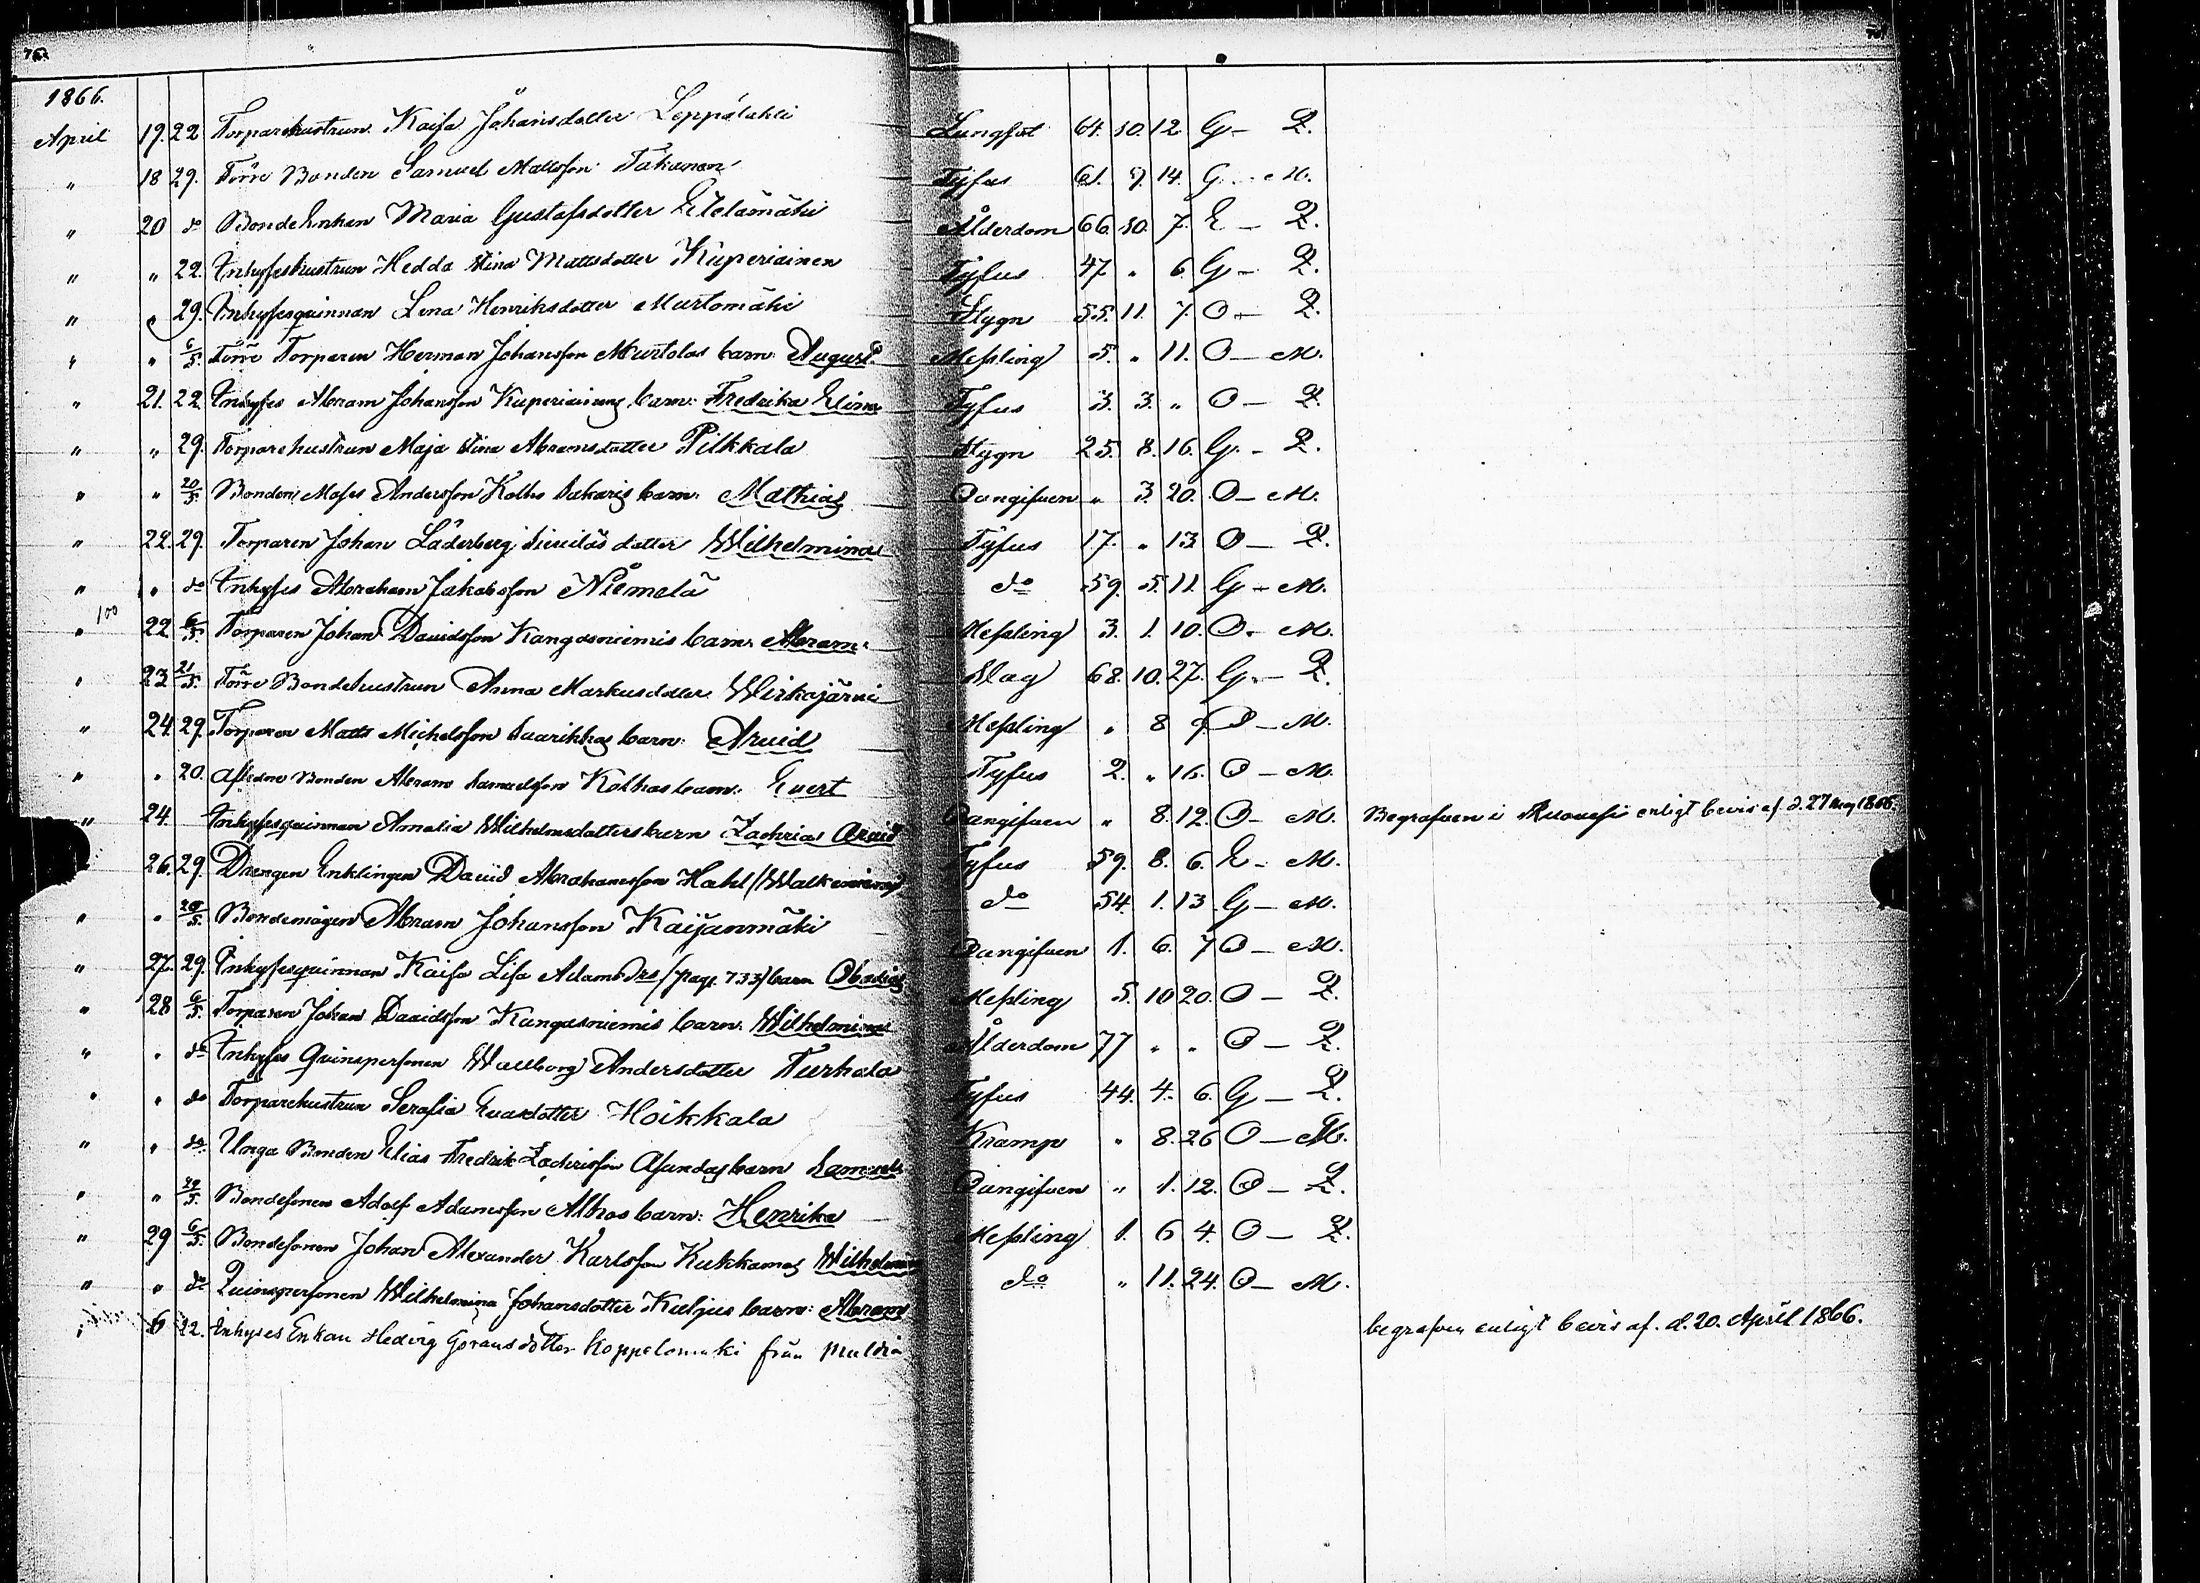 1866.
April 19. 22 Torparehustrun Kaisa Johansdotter Leppälahti Lungsot 64. 10. 12 G – Q.
" 18 29. Förre Bonden Samuel Mattsson Takanen Tyfus 61. 9. 14. G – M.
" 20 do Bondeenkan Maria Gustafsdotter Etelämäki Ålderdom 66 10. 7. E – Q.
" " 22. Inhyseshustrun Hedda Stina Mattsdotter Kuperiainen Tyfus 47 " 6 G – Q.
" " 29. Inhysesquinnan Lena Henriksdotter Murtomäki Stygn 55. 11. 7. O – Q.
" " 6/5. Förre Torparen Herman Johansson Murtolas barn August Messling 5. " 11. O – M.
" 21. 22 Inhyses Abram Johansson Kuperiainens barn: Fredrika Elina Tyfus 3. 3. " O – Q.
" " 29. Torparehustrun Maja Stina Abramsdotter Pilkkala Stygn 25. 8. 16. G – Q.
" " 20/5. Bonden Moses Andersson Kolhis barn: Mathias Oangifven " 3. 20. O – M.
" 22. 29. Torparen Johan Läderberg dotter Wilhelmina Tyfus 17. " 13 O – Q.
" " do Inhyses Abraham Jakobsson Niemelä do 59. 5. 11. G – M.
" 100 22 6/5. Torparen Johan Davidsson Kangasniemis barn: Abram Messling 3. 1. 10. O – M.
" 23 21/5. Förre Bondehustrun Anna Markusdotter Wirkajärvi Slag 68. 10. 27. G – Q.
" 24. 29. Torparen Matts Michelsson Saarikkas barn: Arvid Messling " 8 9 O – M.
" " 20. Bonden Abram Samuelsson Kolhas barn: Evert Tyfus 2. " 16. O – M.
" 24. Inhysesquinnan Amalia Wilhelmsdotters barn Zachrias Arvid Oangifven " 8. 12. O – M. Begrafven i enligt bevis af d. 27 Maj 1866.
26. 29. Drengen Enklingen David Abrahamsson Hahl / Tyfus 59. 8. 6. E – M.
" " 20/5. Bondemågen Abram Johansson Kaijanmäki do 54. 1. 13 G – M.
" 27. 29. Inhysesquinnan Kaisa Lisa Adamsdrs (pag. 733) barn Obadias Oangifven 1. 6. 7 O – M.
" 28 6/5. Torparen Johan Davidsson Kangasniemis barn: Wilhelmina Messling 5. 10 20. O – Q.
" " do Inhyses Qvinspersonen Wallborg Andersdotter Turhala Ålderdom 77 " " O – Q.
" " do Torparehustrun Serafia Evasdotter Hoikkala Tyfus 44. 4. 6. G – Q.
" " do Unga Bonden Elias Fredrik Zachrisson Asundas barn Samuel Kramp " 8. 26 O – M.
" " 20/5. Bondesonen Adolf Adamsson Alhos barn: Henrika Oangifven " 1. 12. O – Q.
" 29 6/5. Bondesonen Johan Alexander Karlsson Kukkamas Wilhelmina Messling 1. 6 4. O – Q.
" " do Quinspersonen Wilhelmina Johansdotter Kuljus barn: Abram do " 11. 24. O – M.
" 22. Inhyses Enkan Hedvig Göransdotter Koppelomäki från Multia begrafven enligt bevis af. d. 20. April 1866.